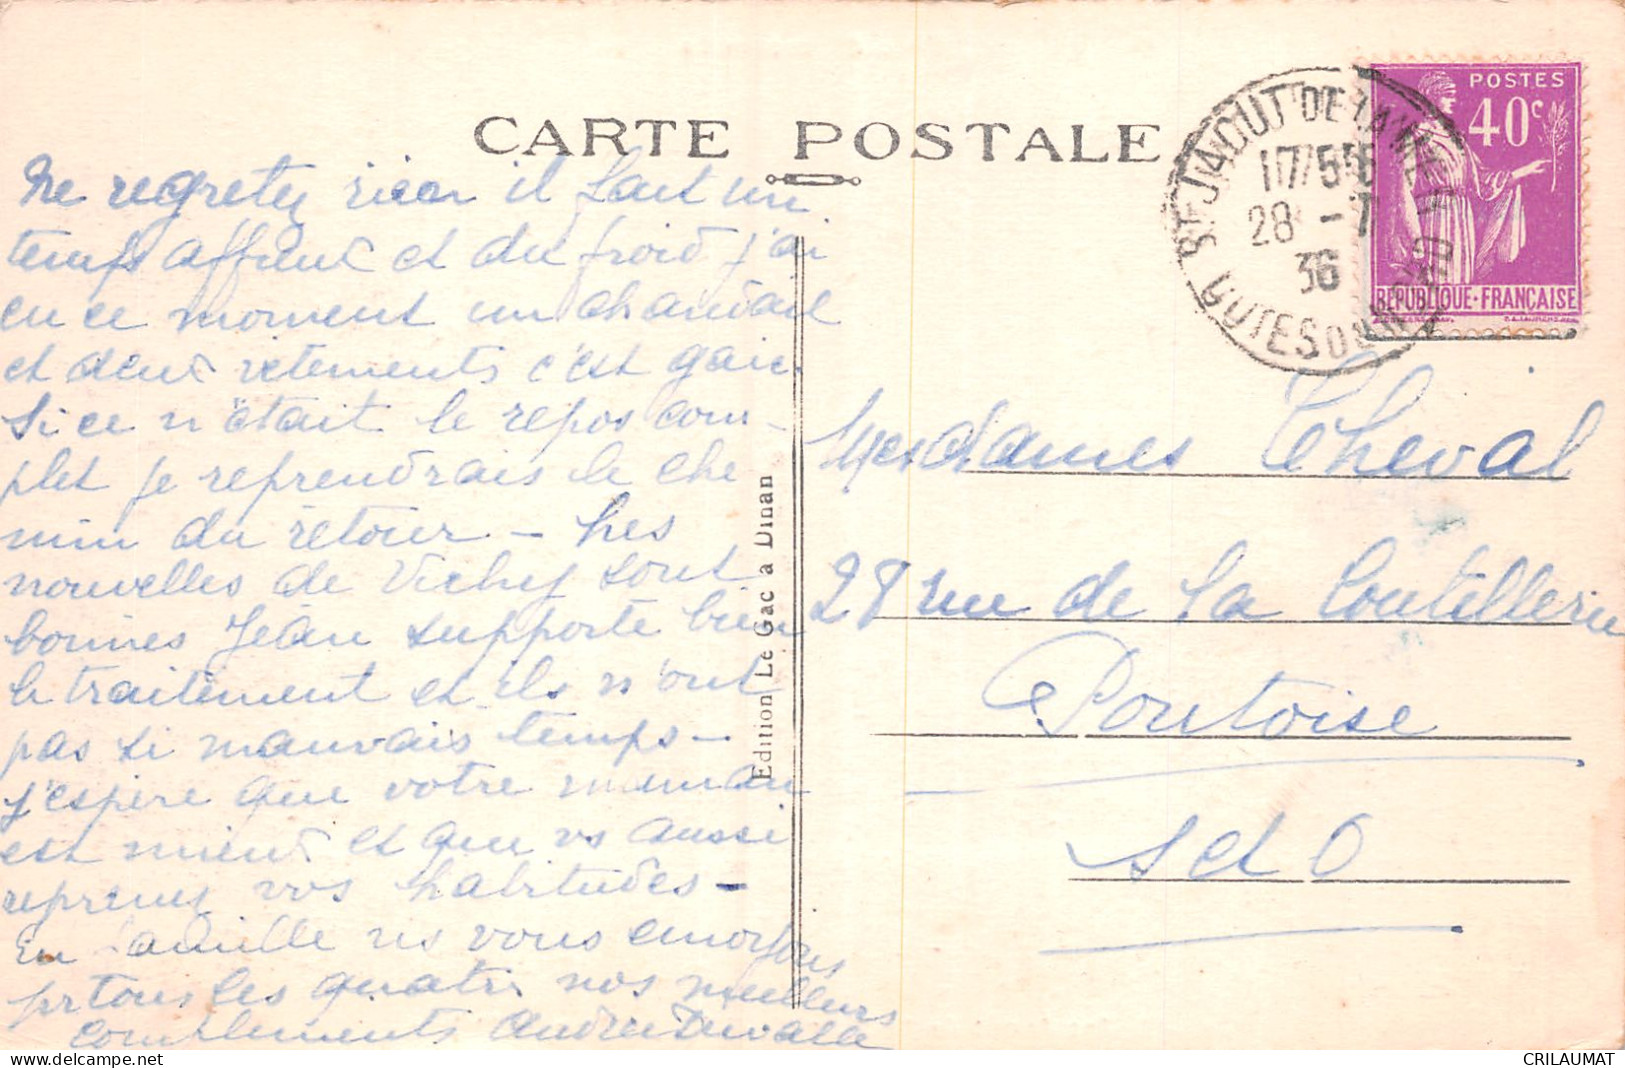 CARTE POSTALE
Ne regretez rien il fait un
temps affreux et du froid j'ai
en ce moment un chandail
et deux vetements c'est gai.
Si ce n'était le repos com-
plet je reprendrais le che
min du retour - Les
nouvelles de Vichy sont
bonnes Jean supporte bien
le traitement et ils n'ont
pas si mauvais temps -
j'espère que votre maman
est mieux et que vs aussi
reprenez vos habitudes -
En famille ns vous envoyons
pr tous les quatre nos meilleurs
compliments Andrée Duvalle
Edition Le Gac a Dinan
ST JACUT DE LA MER
17/5
28 -7
36
COTES DU NORD
POSTES
40c
REPUBLIQUE-FRANCAISE
Mesdames Cheval
28 rue de la Coutellerie
Pontoise
S et O
CRILAUMAT